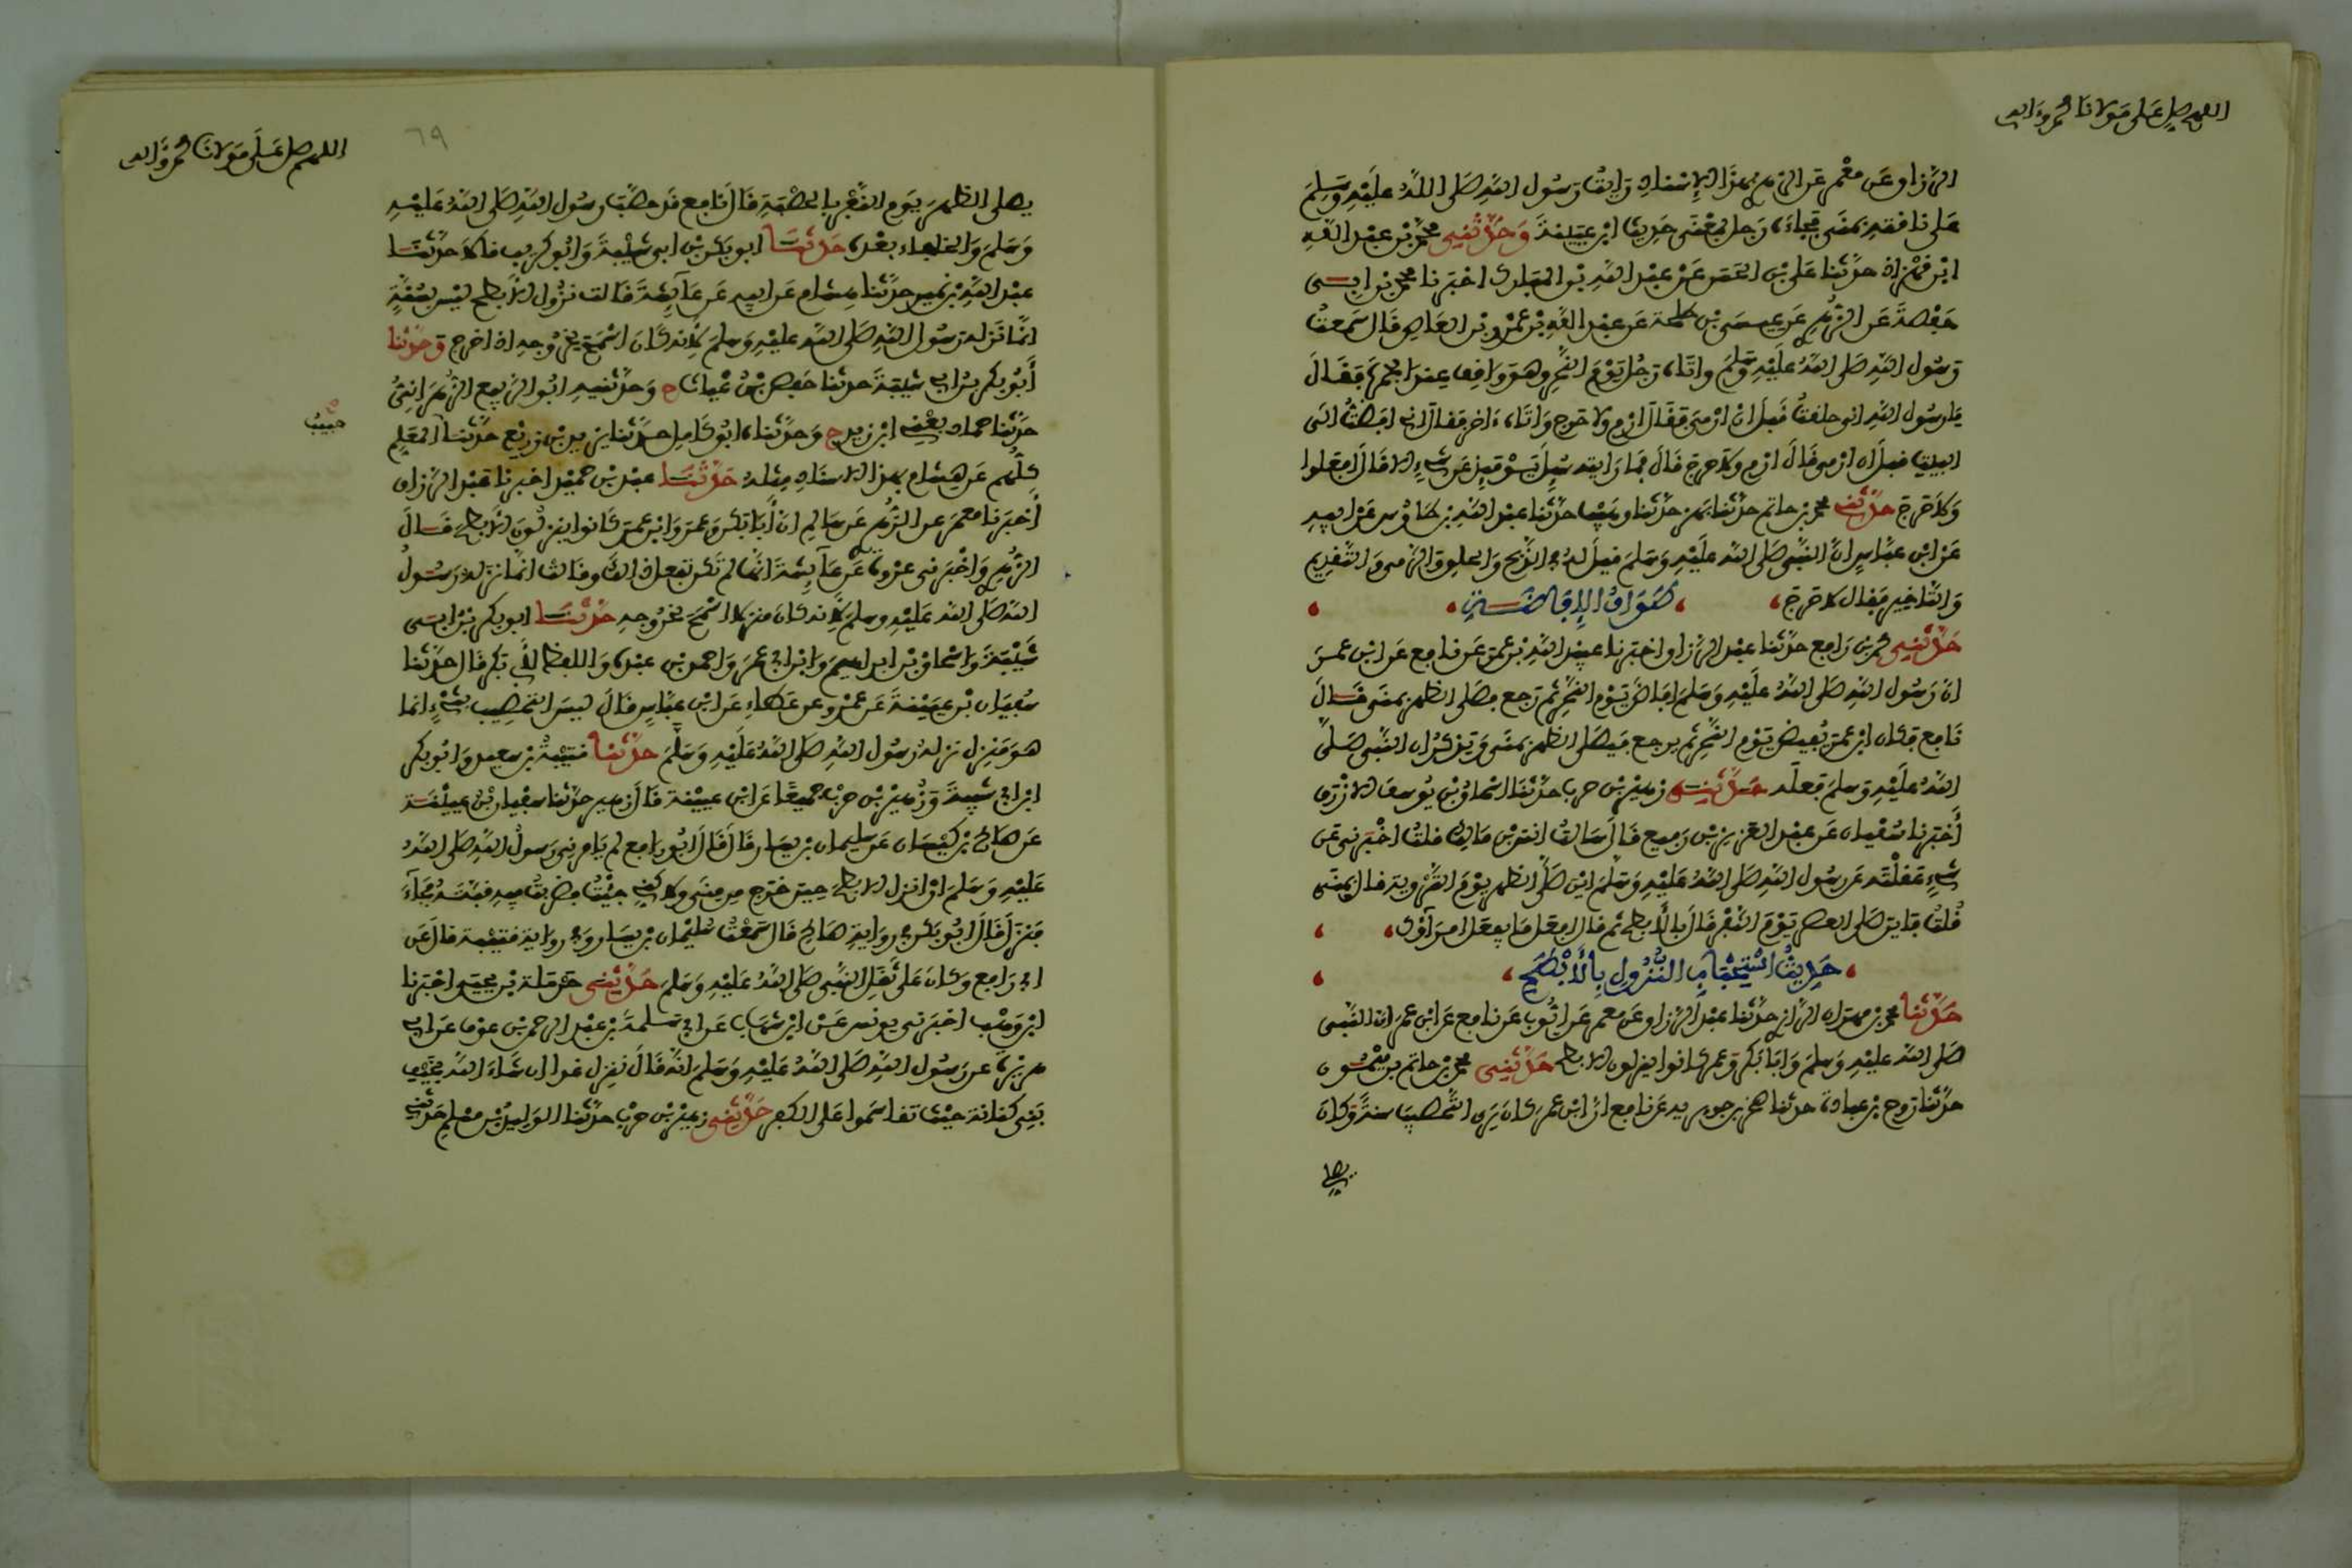 اللهم صل على مولانا محمد وآله
الرزاق عن معمر عن الزهري بهذا الإسناد رأيت رسول الله صلى الله عليه وسلم
على ناقته بمنى فجاءه رجل بمعنى حديث ابن عيينة وحدثني محمد بن عبد الله
ابن قهزاذ حدثنا علي بن الحسن عن عبد الله بن المبارك اخبرنا محمد بن ابي
حفصة عن الزهري عن عيسى بن طلحة عن عبد الله بن عمرو بن العاص قال سمعت
رسول الله صلى الله عليه وسلم واتاه رجل يوم النحر وهو واقف عند الجمرة فقال
يا رسول الله اني حلقت قبل ان ارمي فقال ارم ولا حرج واتاه ءاخر فقال اني افضت الى
البيت قبل ان ارمي قال ارم ولا حرج قال فما رايته سيل يومئذ عن شيء الا قال افعلوا
ولا حرج حدثني محمد بن حاتم حدثنا بهز حدثنا وهيب حدثنا عبد الله بن طاوس عن ابيه
عن ابن عباس ان النبي صلى الله عليه وسلم قيل له في الذبح والحلق والرمي والتقديم
والتاخير فقال لا حرج، طواف الإفاضة
حدثني محمد بن رافع حدثنا عبد الرزاق اخبرنا عبيد الله بن عمر عن نافع عن ابن عمر
ان رسول الله صلى الله عليه وسلم افاض يوم النحر ثم رجع فصلى الظهر بمنى قال
نافع فكان ابن عمر يفيض يوم النحر ثم يرجع فيصلي الظهر بمنى ويذكر ان النبي صلى
الله عليه وسلم فعله حدثني زهير بن حرب حدثنا اسحاق بن يوسف الازرق
أخبرنا سفيان عن عبد العزيز بن رفيع قال سالت انس بن مالك قلت اخبرني عن
شيء عقلته عن رسول الله صلى الله عليه وسلم اين صلى الظهر يوم التروية قال بمنى
قلت فاين صلى العصر يوم النفر قال بالأبطح ثم قال افعل ما يفعل امراؤك،
حديث استحباب النزول بالأبطح
حدثنا محمد بن مهران الرازي حدثنا عبد الرزاق عن معمر عن ايوب عن نافع عن ابن عمر ان النبي
صلى الله عليه وسلم وابا بكر وعمر كانوا ينزلون الابطح حدثني محمد بن حاتم بن ميمون
حدثنا روح بن عبادة حدثنا صخر بن جويرية عن نافع ان ابن عمر كان يرى التحصيب سنة وكان
يصلي
اللهم صل على مولانا محمد وآله
٦٩
يصلي الظهر يوم النفر بالحصبة قال نافع قد حصب رسول الله صلى الله عليه
وسلم والخلفاء بعده حدثنا ابو بكر بن ابي شيبة وابو كريب قالا حدثنا
عبد الله بن نمير حدثنا هشام عن ابيه عن عآيشة قالت نزول الابطح ليس بسنة
انما نزله رسول الله صلى الله عليه وسلم لانه كان اسمح لخروجه اذا خرج وحدثنا
أبو بكر بن ابي شيبة حدثنا حفص بن غياث ح وحدثنيه ابو الربيع الزهراني
حدثنا حماد يعني ابن زيد ح وحدثناه ابو كامل حدثنا يزيد بن زريع حدثنا المعلم
ح
حبيب
كلهم عن هشام بهذا الاسناد مثله حدثنا عبد بن حميد اخبرنا عبد الرزاق
أخبرنا معمر عن الزهري عن سالم ان أبا بكر وعمر وابن عمر كانوا ينزلون الابطح قال
الزهري واخبرني عروة عن عآيشة انها لم تكن تفعل ذالك وقالت انما نزله رسول
الله صلى الله عليه وسلم لانه كان منزلا اسمح لخروجه حدثنا ابو بكر بن ابي
شيبة واسحاق بن ابراهيم وابن ابي عمر واحمد بن عبدة واللفظ لابي بكر قال حدثنا
سفيان بن عيينة عن عمرو عن عطاء عن ابن عباس قال ليس التحصيب بشيء انما
هو منزل نزله رسول الله صلى الله عليه وسلم حدثنا قتيبة بن سعيد وابو بكر
ابن ابي شيبة وزهير بن حرب جميعا عن ابن عيينة قال زهير حدثنا سفيان بن عيينة
عن صالح بن كيسان عن سليمان بن يسار قال قال ابو رافع لم يامرني رسول الله صلى الله
عليه وسلم ان انزل الابطح حين خرج من منى ولكني جيت فضربت فيه قبته فجآء
فنزل قال ابو بكر في رواية صالح قال سمعت سليمان بن يسار وفي رواية قتيبة قال عن
ابي رافع وكان على ثقل النبي صلى الله عليه وسلم حدثني حرملة بن يحيى اخبرنا
ابن وهب اخبرني يونس عن ابن شهاب عن ابي سلمة بن عبد الرحمن بن عوف عن ابي
هريرة عن رسول الله صلى الله عليه وسلم انه قال ننزل غدا ان شاء الله بخيف
بني كنانة حيث تقاسموا على الكفر حدثني زهير بن حرب حدثنا الوليد بن مسلم حدثني